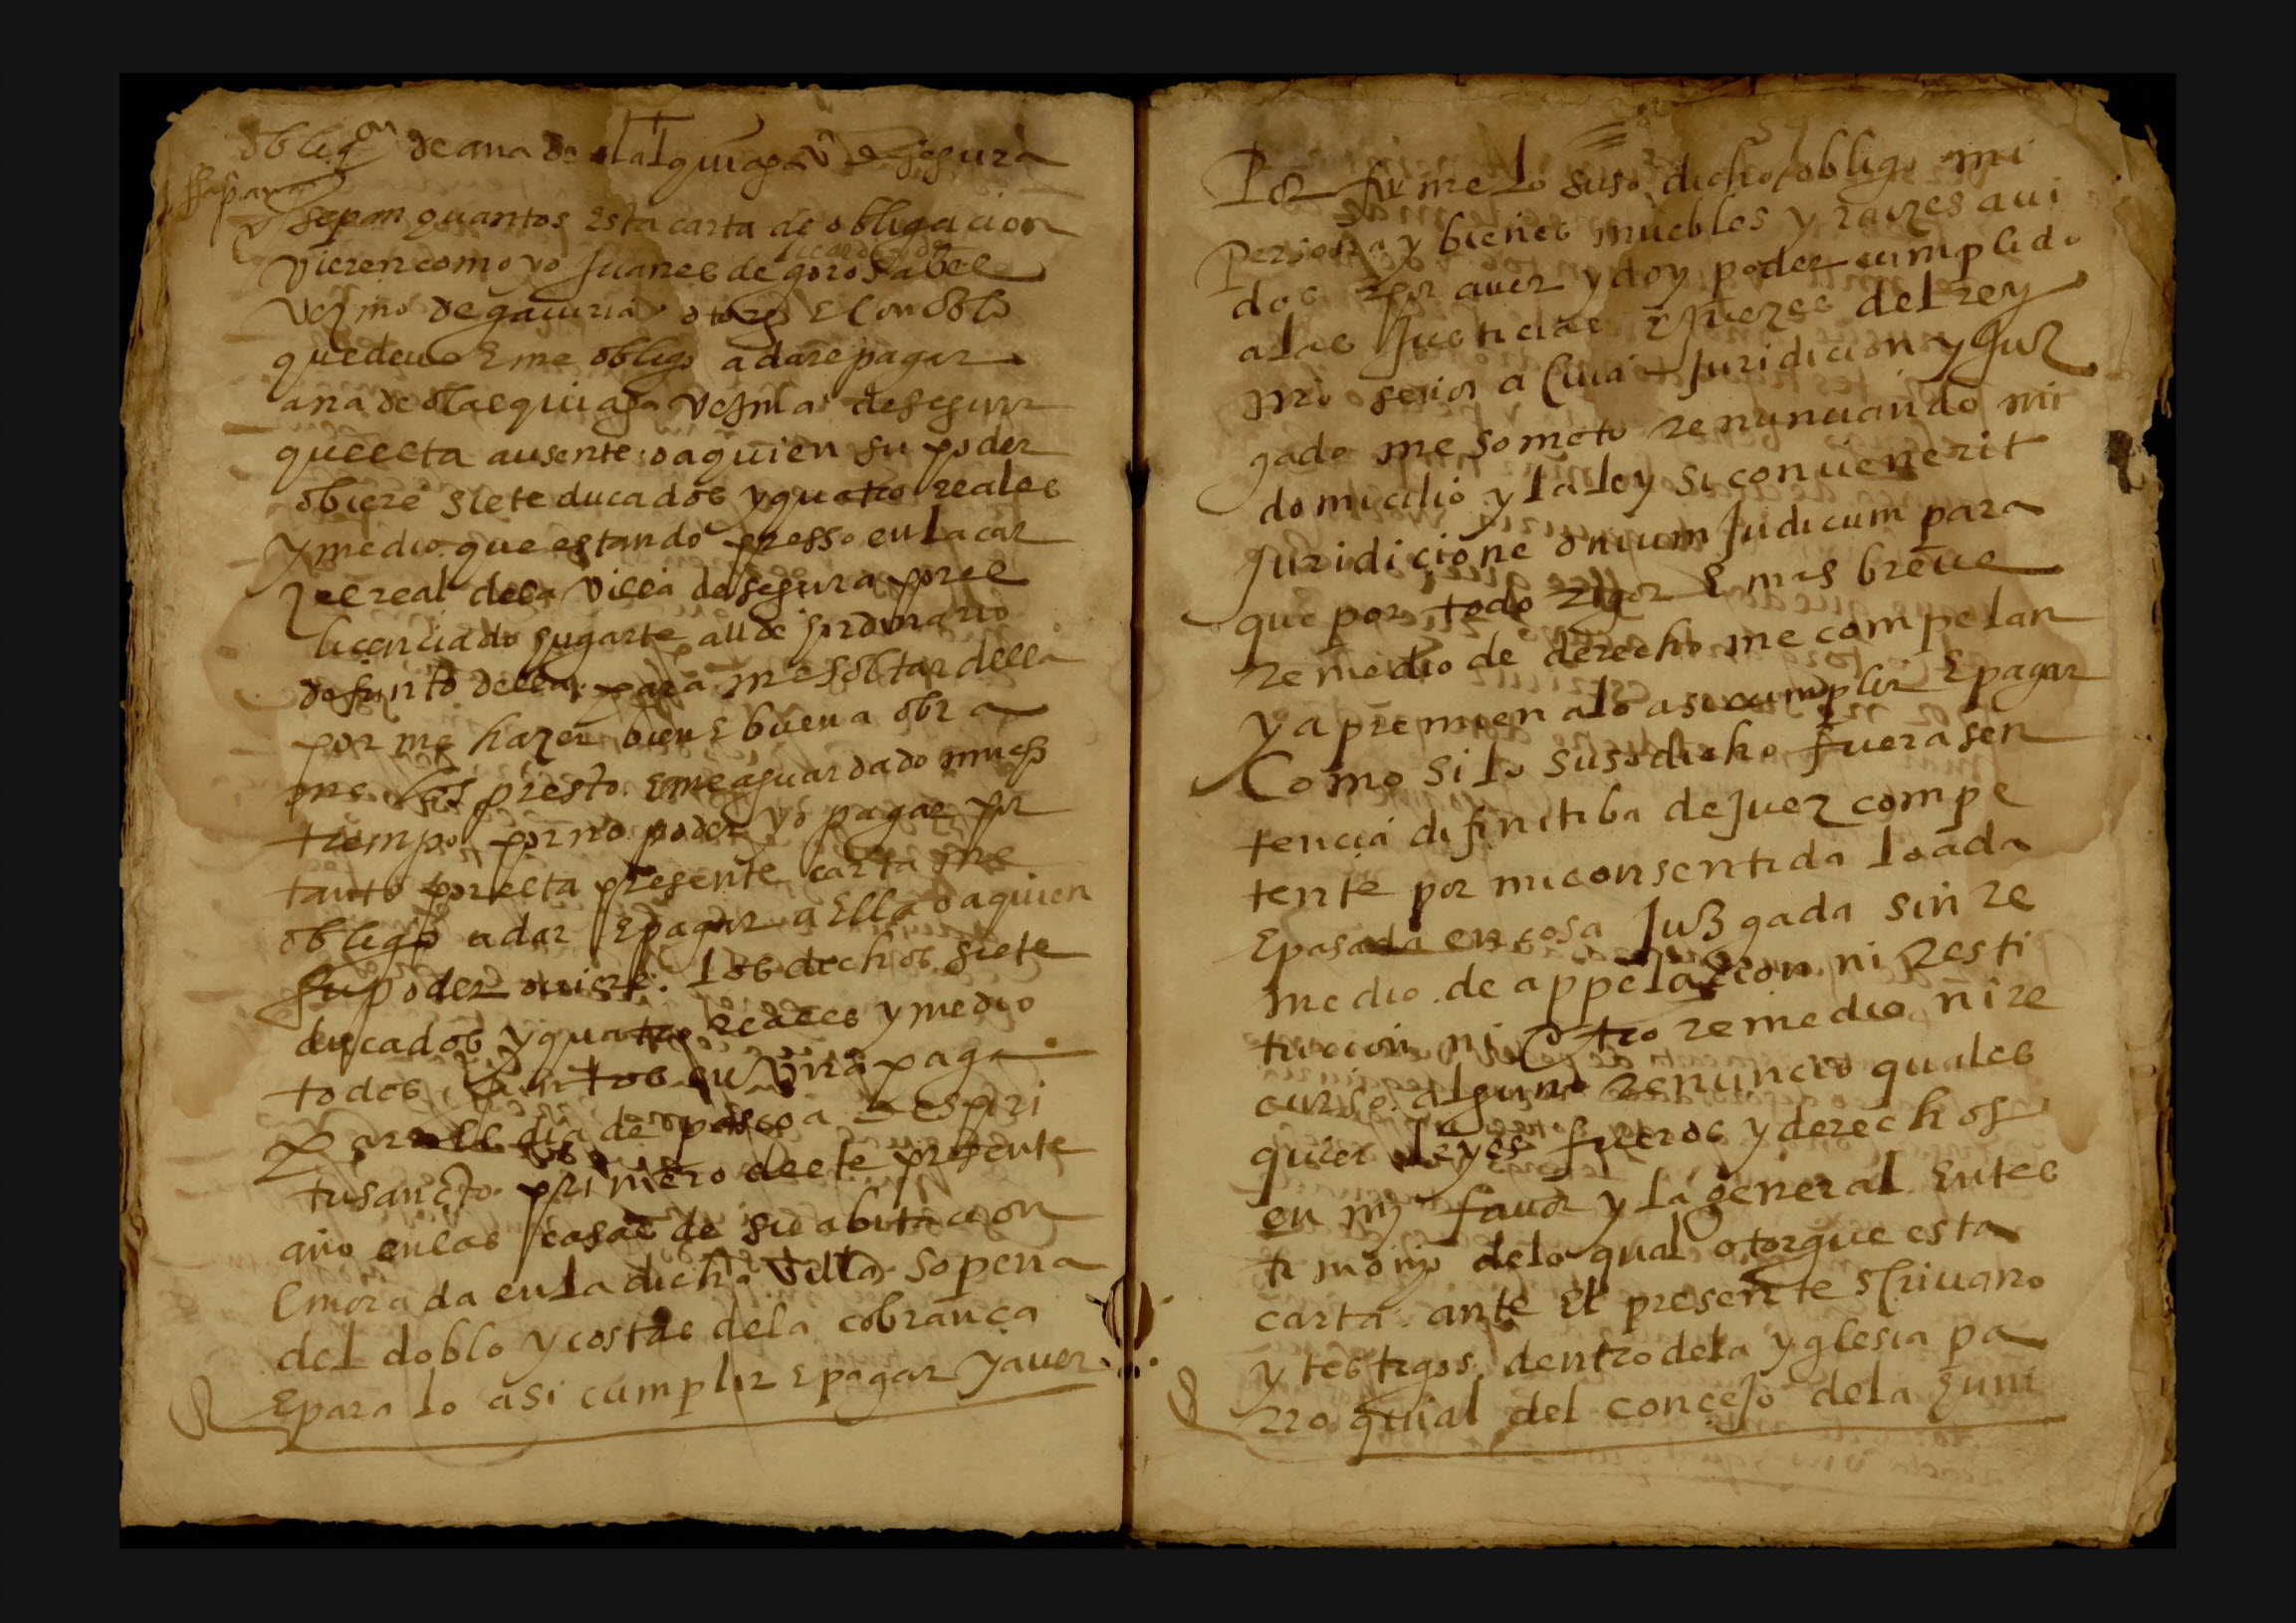 obligon de ana de olalquiaga va de segura
sepan quantos esta carta de obligacion
vieren como yo Juanes de gorosabel
vezino de gaviria otorgo E Conozco
que devo E me obligo a dar e pagar
ana de olaequiaga vezina de segura
que esta ausente o a quien su poder
obiere siete ducados y quatro reales
y medio que estando presso en la car
zel real de la villa de segura por el
licenciado ugarte allde hordinario
defunto della para me soltar della
por me hazer bien E buena obra
me los presto E me a guardado mucho
tiempo por no poder yo pagar por
tanto por esta presente carta me
obligo a dar E pagar a Ella o a quien
su poder oviere los dichos siete
ducados y quatro reales y medio
todos Juntos en vna paga
para el dia de pascoa de espiri
tu sancto primero deste presente
año en las casas de su abitacion
E morada en la dicha villa so pena
del doblo y costas de la cobrança
E para lo asi cumplir E pagar y aver
Por firme lo suso dicho obligo mi
Persona y bienes muebles y raizes avi
dos E por aver y doy poder cumplido
a las Justicias E Juezes del rey
nro señor a Cuia Juridicion y Juz
gado me someto renunciando mi
domicilio y la ley si convenerit
Juridicione oniun Judicum para
que por todo rigor E mas breue
remedio de derecho me compelan
y apremien a lo asi cumplir E pagar
Como si lo susodicho fuera sen
tencia difinitiba de Juez compe
tente por mi consentida loada
E pasada en cosa Juzgada sin re
medio de appelacion ni resti
tucion ni otro remedio ni re
curso alguno renuncio quales
quier leyes fueros y derechos
en mj favor y la general En tes
timonjo de lo qual otorgue esta
carta ante El presente Scrivano
y testigos dentro de la yglesia pa
rroquial del concejo de la